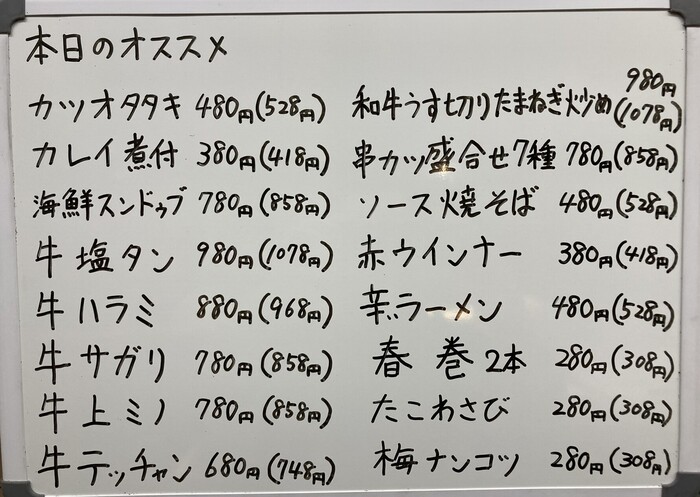 本日のオススメ
カツオタタキ 480円(528円)
カレイ煮付 380円(418円)
海鮮スンドゥブ 780円(858円)
牛塩タン 980円(1078円)
牛ハラミ 880円(968円)
牛サガリ 780円(858円)
牛上ミノ 780円(858円)
牛テッチャン 680円(748円)
和牛うす切りたまねぎ炒め 980円(1078円)
串カツ盛合せ7種 780円(858円)
ソース焼そば 480円(528円)
赤ウインナー 380円(418円)
辛ラーメン 480円(528円)
春巻2本 280円(308円)
たこわさび 280円(308円)
梅ナンコツ 280円(308円)